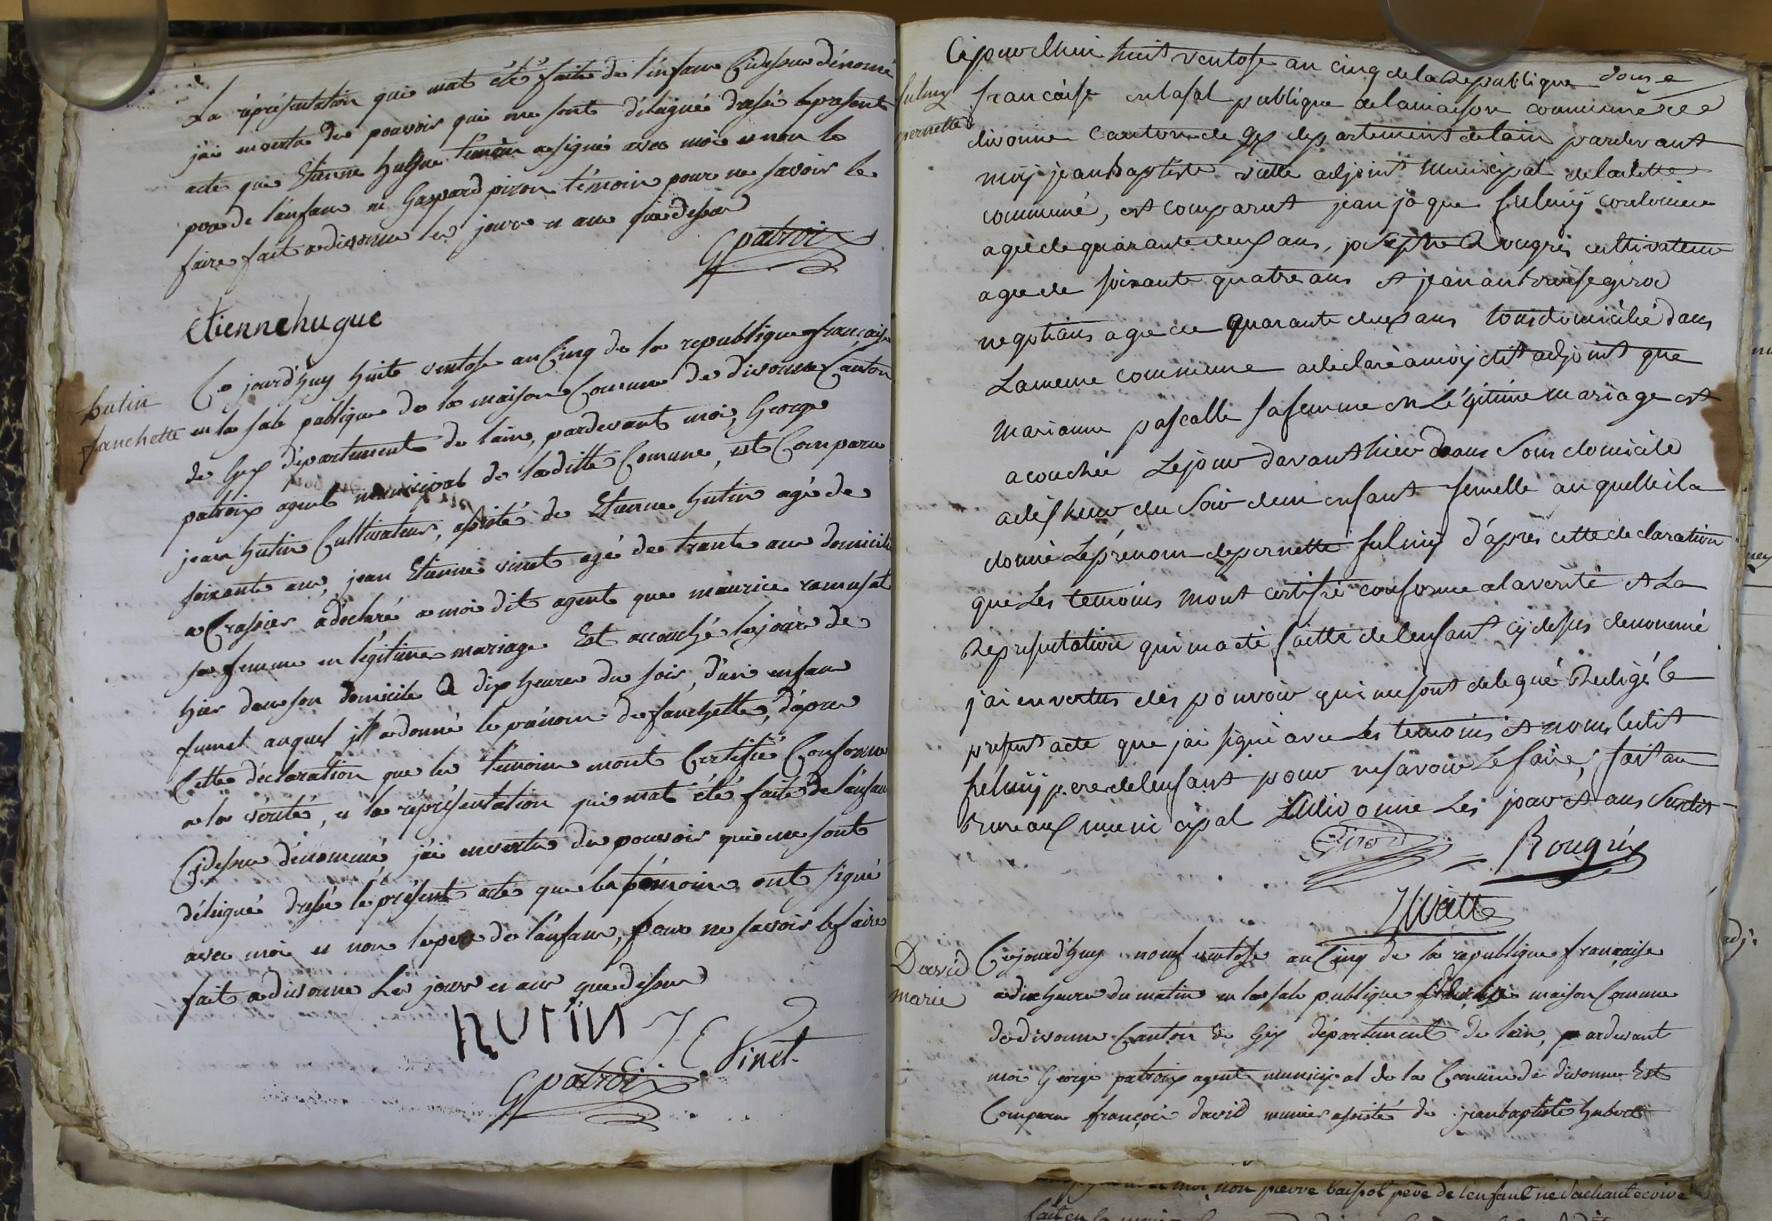 La représentation qui mat été faite de l'enfans Cidessus dénomé
j'ai envertu des pouvoir qui me sont délégué dressé le présent
acte que Etienne hugue témoin asigné avec moi et non le
pere de l'enfans ni Gaspard piron témoin pour ne savoir le
faire fait a divonne les jours et ans que dessus
Gpatroix
Etienne hugue
hutin
fanchette
Ce jourd'huy huite ventose an Cinq de la republique française
en la sale publique de la maison Comune de divonne Canton
de Gex département de lain, pardevant moi, George
patroix agent municipal de laditte Comune, est Comparu
jean hutin Cultivateur, assisté de Etienne hutin agé de
soixante ans, jean Etienne vinet agé de trante ans domicilié
a Crassier a déclaré a moi dit agent que maurice ramusat
sa femme en légitime mariage Est accouché le jour de
hier dans son domicile a dix heures du soir, d'un enfans
fumel auquel il a donné le prénom de fanchette, d'apres
Cette déclaration que les témoins mont Certifié Conforme
a la vérité, et la représentation qui mat été faite de l'enfans
Cidessus dénommé j'ai envertu des pouvoir qui me sont
délégué dressé le présent acte que les témoins ont signé
avec moi et non le pere de l'enfans, pour ne savoir le faire
fait a divonne les jours et ans que dessus
HUTIN J E Vinet
Gpatroix
douse
fulmy
pernette
Cejourdhui huit ventose an cinq de la Republique
francaise en lasal publique de lamaison commune de
divonne canton de Gex departement de lain pardevant
moy jean baptiste vuatte adjoint municipal de ladette
commune, est comparut jean jaque fulmy cordonier
agé de quarante deux ans, joseph Rougés cultivateur
age de soixante quatre ans et jean antoine girod
negotians age de quarante deux ans tous domicilié dans
Lameme commune adeclaré a moy dit adjoint que
marianne pascalle sa femme en Légitime mariage est
acouchée Lejour davant hier dans son domicile
a dix heure du soir dun enfant femelle auquelle il a
donné Le prénom de pernette fulmy d'après cette declaration
que Les temoins mont certifié conforme alaverité et La
Representation qui ma eté faitte de lenfant cy dessus denommé
j'ai en vertus des pouvoir qui me sont delegué Redigé le
present acte que jai signé avec Les temoins et non ledit
fulmy pere de lenfant pour ne savoir Le faire, fait au
Bureau municipal de divonne Les jour et ans susdit
Girod Rougés
JBVuatte
David
marie
Cejourd'huy neuf ventose an Cinq de la republique française
a dix heure du matin en la sale publique de la maison Comune
de divonne Canton de Gex département de lain, pardevant
moi George patroix agent municipal de la Comune de divonne Est
Comparu françois david munier assisté de jean baptiste hubert
non pierre baispot père de lenfant ne sachant écrire